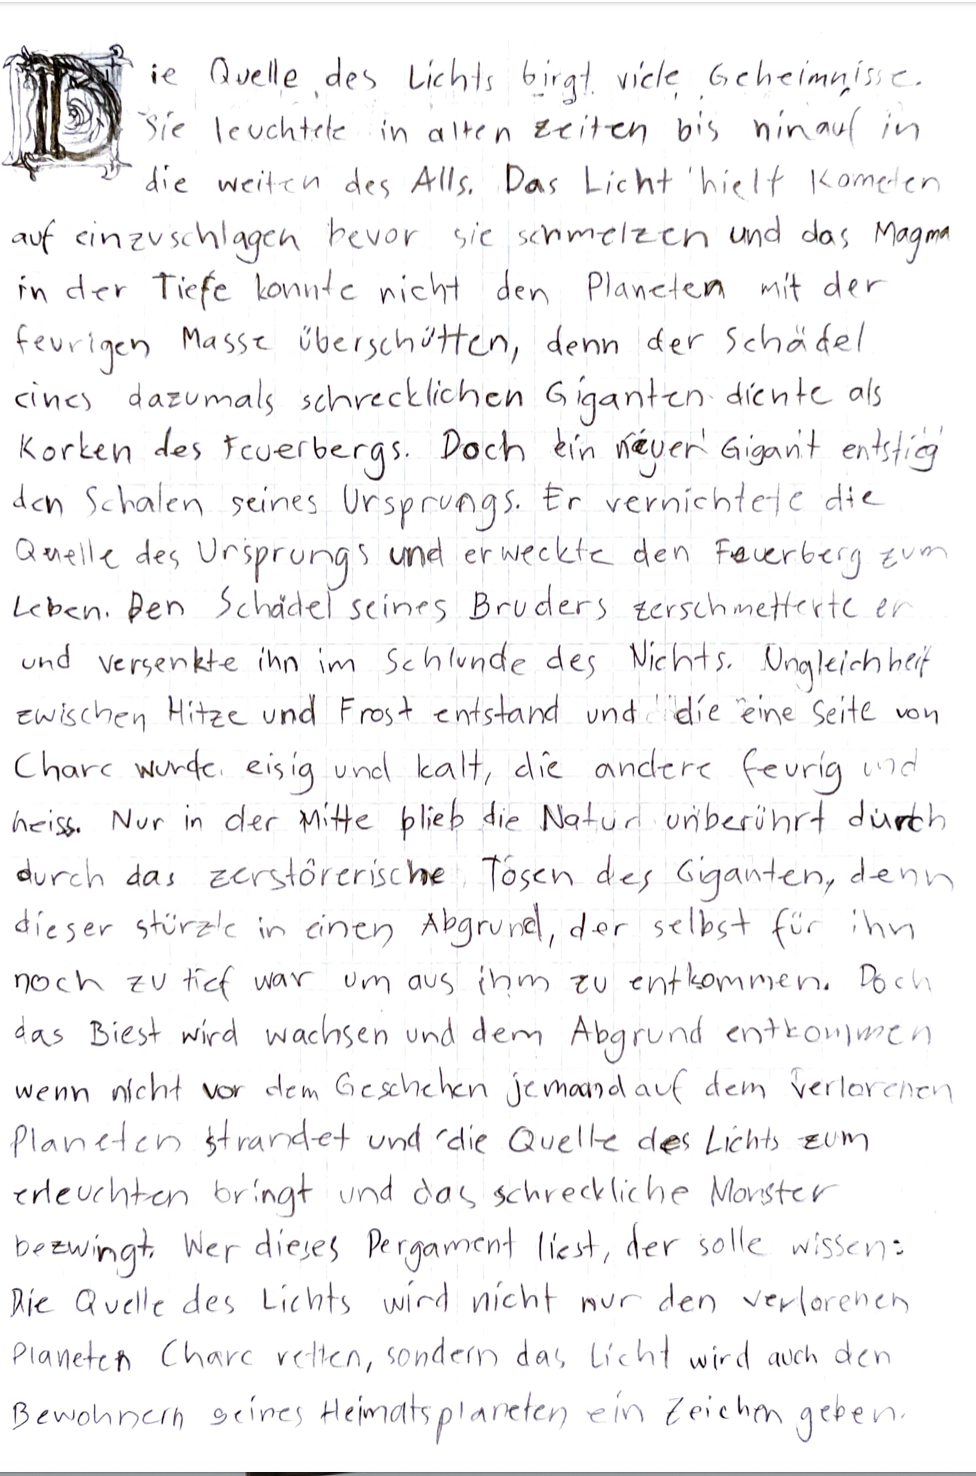 Die Quelle des Lichts birgt viele Geheimnisse.
Sie leuchtete in alten Zeiten bis hinauf in
die weiten des Alls. Das Licht hielt Kometen
auf einzuschlagen bevor sie schmelzen und das Magma
in der Tiefe konnte nicht den Planeten mit der
feurigen Masse überschütten, denn der Schädel
eines dazumals schrecklichen Giganten diente als
Korken des Feuerbergs. Doch ein neuer Gigant entstieg
den Schalen seines Ursprungs. Er vernichtete die
Quelle des Ursprungs und erweckte den Feuerberg zum
Leben. Den Schädel seines Bruders zerschmetterte er
und versenkte ihn im Schlunde des Nichts. Ungleichheit
zwischen Hitze und Frost entstand und die eine Seite von
Charc wurde eisig und kalt, die andere feurig und
heiss. Nur in der Mitte blieb die Natur unberührt durch
durch das zerstörerische Tosen des Giganten, denn
dieser stürzte in einen Abgrund, der selbst für ihn
noch zu tief war um aus ihm zu entkommen. Doch
das Biest wird wachsen und dem Abgrund entkommen
wenn nicht vor dem Geschehen jemand auf dem verlorenen
Planeten strandet und die Quelle des Lichts zum
erleuchten bringt und das schreckliche Monster
bezwingt. Wer dieses Pergament liest, der solle wissen:
Die Quelle des Lichts wird nicht nur den verlorenen
Planeten Charc retten, sondern das Licht wird auch den
Bewohnern seines Heimatsplaneten ein Zeichen geben.